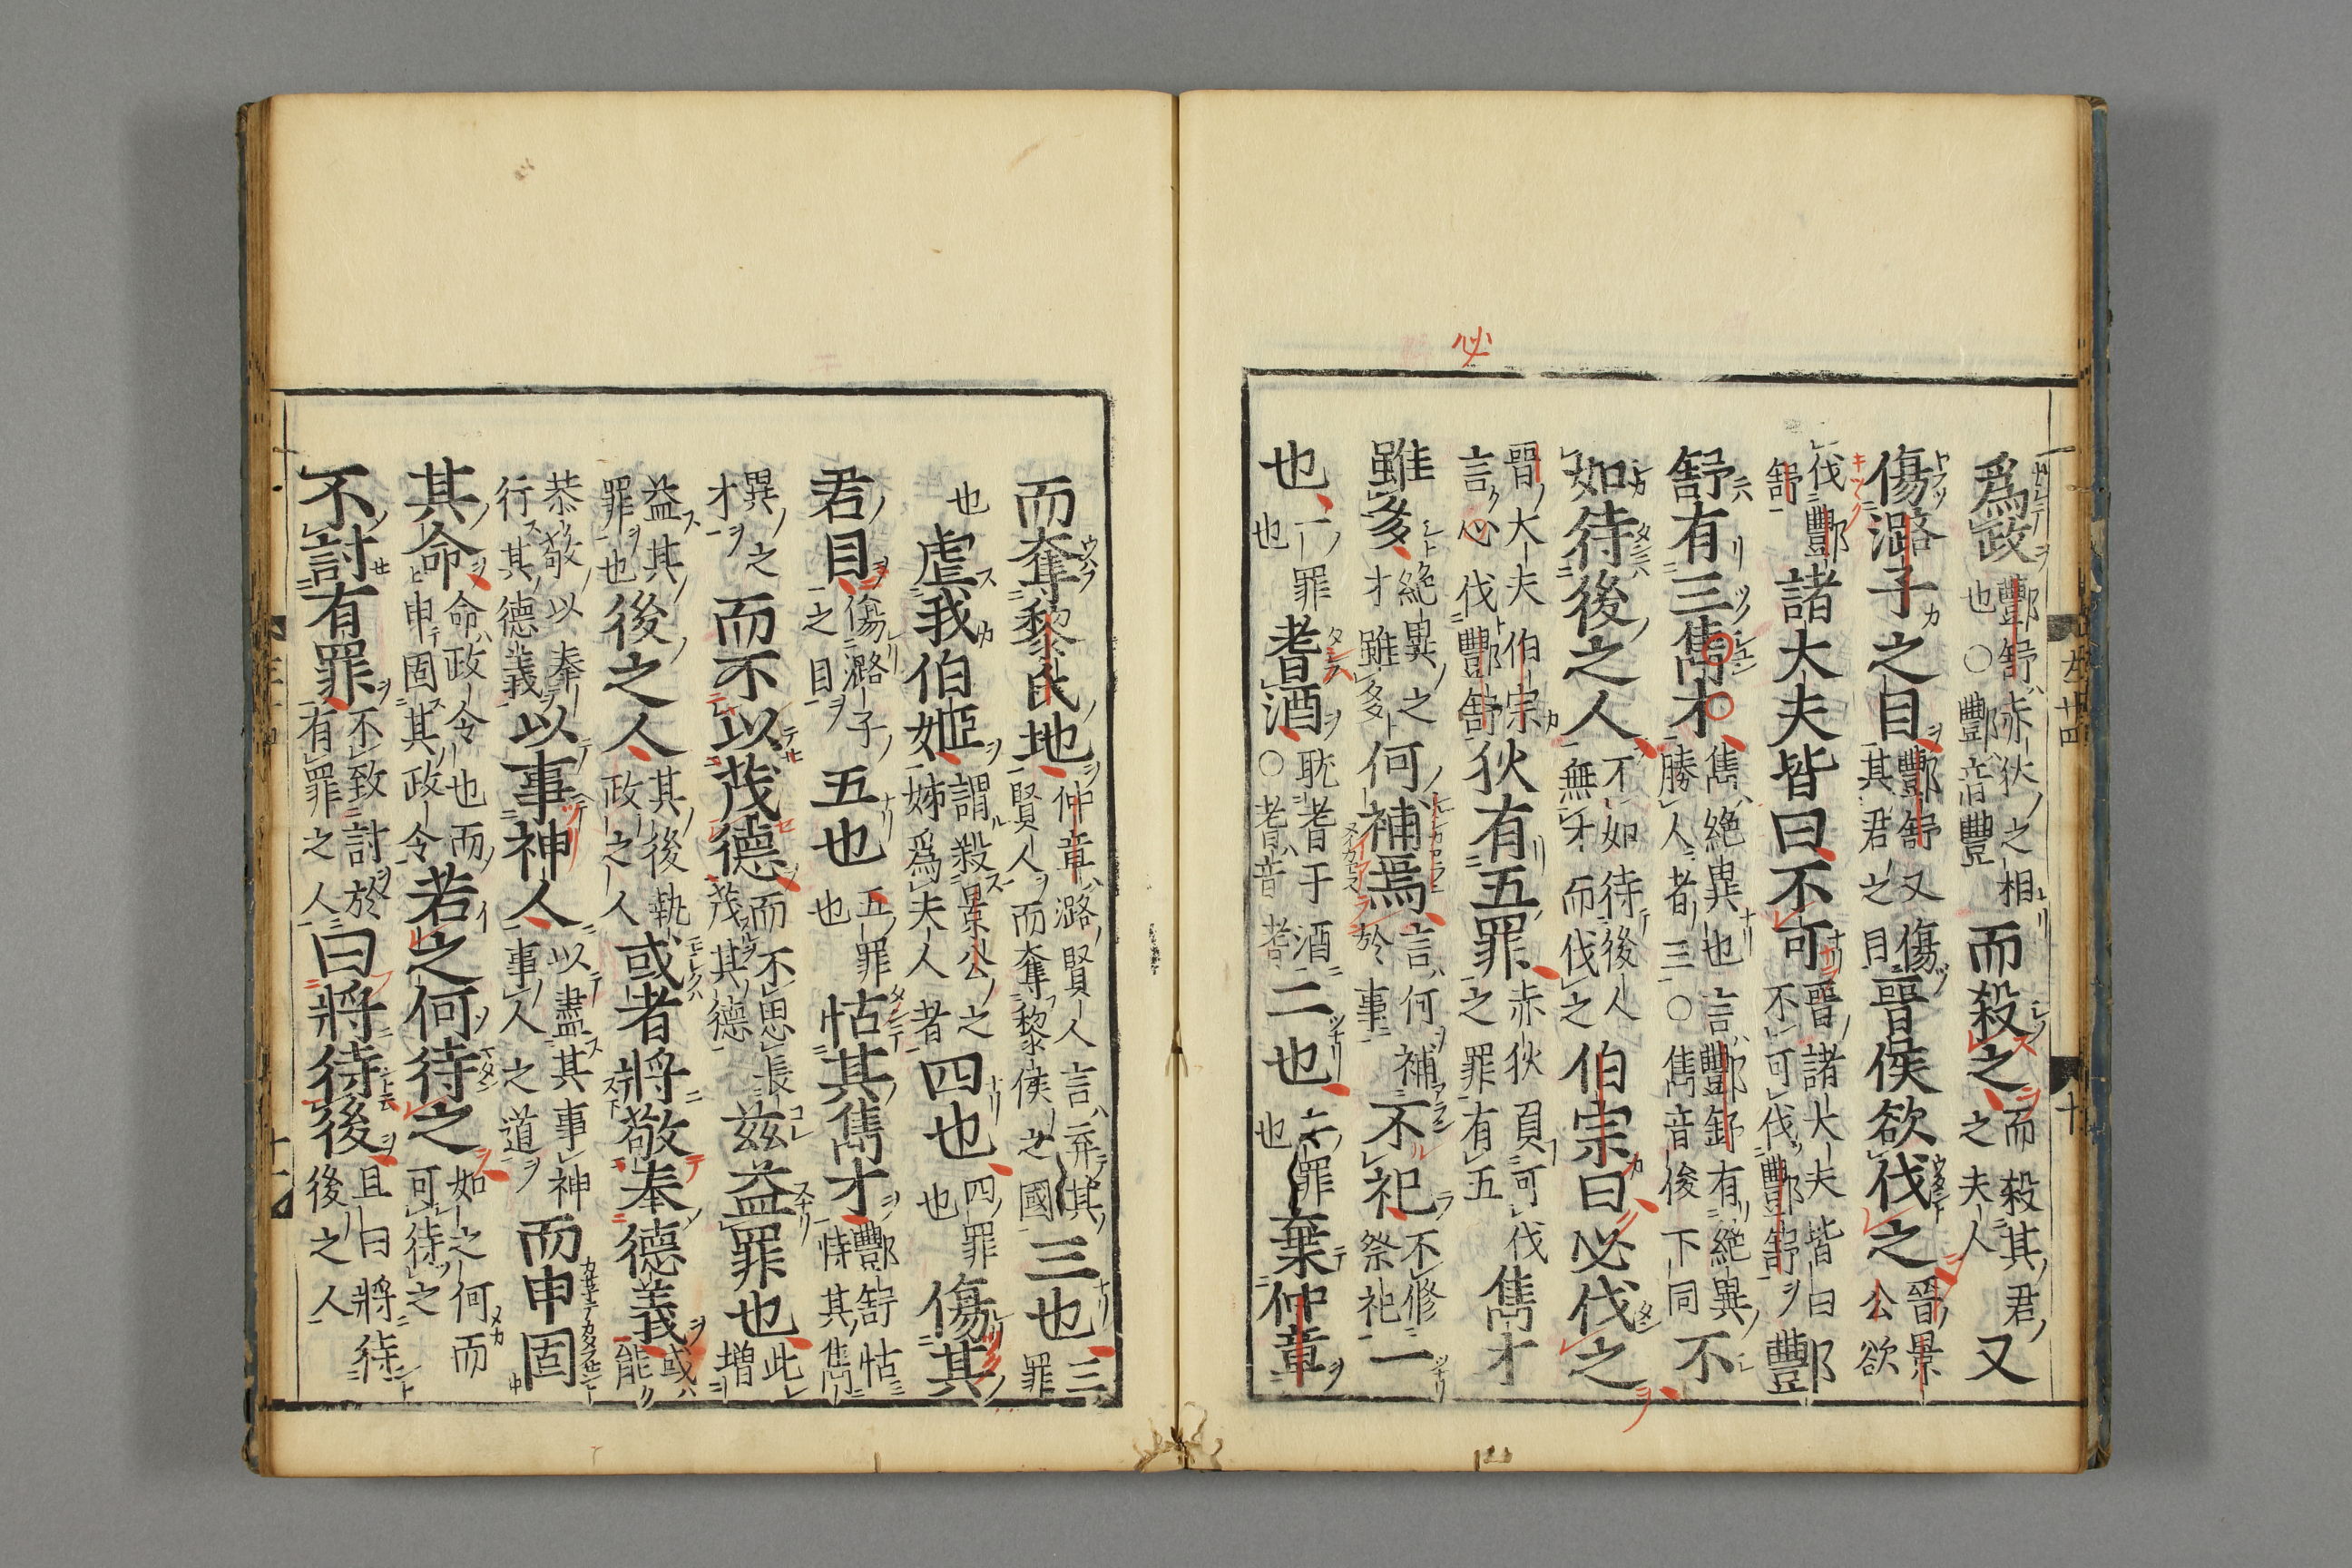 爲政酆舒赤狄之相也○酆音豐而殺之而殺其君之夫人又
傷潞子之目酆舒又傷其君之目晉侯欲伐之晉景公欲
伐酆舒諸大夫皆曰不可晉諸大夫皆曰不可伐酆舒酆
舒有三雋才雋絶異也言酆舒有絶異勝人者三○雋音俊下同不
如待後之人不如待後人無才而伐之伯宗曰必伐之
晉大夫伯宗言心伐酆舒狄有五罪赤狄頁可伐之罪有五雋才
雖多絶異之才雖多何補焉言何補於事不祀不修祭祀一
也一罪也耆酒耽耆于酒○耆音嗜二也二罪也棄仲章
而奪黎氏地仲章潞賢人言弃其賢人而奪黎侯之國三也三罪
也虐我伯姬謂殺景公之姊爲夫人者四也四罪也傷其
君目傷潞子之目五也五罪也怙其雋才酆舒怙恃其雋
異之才而不以茂德而不思長茂其德茲益罪也此增
益其罪也後之人其後執政之人或者將敬奉德義或能
恭敬以奉行其德義以事神人以盡其事神事人之道而申固
其命命政令也而申固其政令若之何待之如之何而可待之
不討有罪不致討於有罪之人曰將待後且曰將待後之人
必
左廿四
十